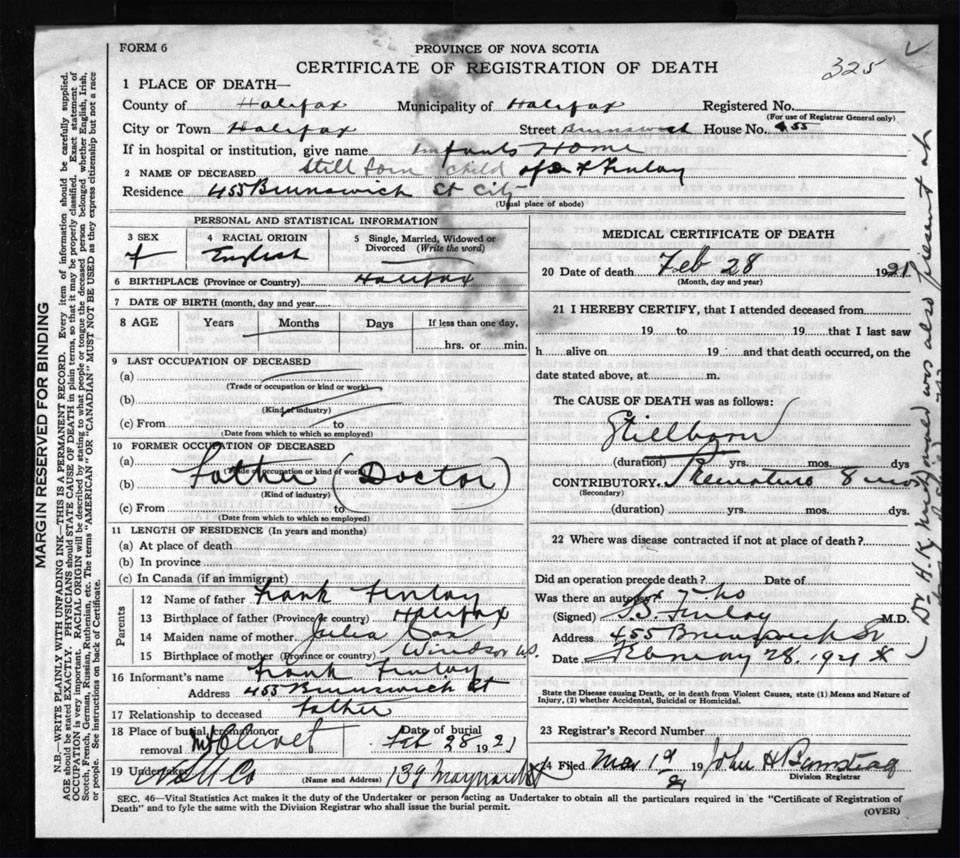 FORM 6
325
PROVINCE OF NOVA SCOTIA
CERTIFICATE OF REGISTRATION OF DEATH
1 PLACE OF DEATH—
County of Halifax Municipality of Halifax Registered No.
(For use of Registrar General only)
City or Town Halifax Street Brunswick House No. 455
If in hospital or institution, give name Infants Home
2 NAME OF DECEASED Still born child of F Finlay
Residence 455 Brunswick St City
(Usual place of abode)
PERSONAL AND STATISTICAL INFORMATION
3 SEX
4 RACIAL ORIGIN
5 Single, Married, Widowed or Divorced (Write the word)
f English
6 BIRTHPLACE (Province or Country) Halifax
7 DATE OF BIRTH (month, day and year)
8 AGE Years Months Days If less than one day,
hrs. or min.
9 LAST OCCUPATION OF DECEASED
(a)
(Trade or occupation or kind or work)
(b)
(Kind of industry)
(c) From to
(Date from which to which so employed)
10 FORMER OCCUPATION OF DECEASED
(a)
(Trade or occupation or kind of work)
Father (Doctor)
(b)
(Kind of industry)
(c) From to
(Date from which to which so employed)
11 LENGTH OF RESIDENCE (In years and months)
(a) At place of death
(b) In province
(c) In Canada (if an immigrant)
Parents
12 Name of father Frank Finlay
13 Birthplace of father (Province or country) Halifax
14 Maiden name of mother Julia Cox
15 Birthplace of mother (Province or country) Windsor N.S.
16 Informant's name Frank Finlay
Address 455 Brunswick St
17 Relationship to deceased father
18 Place of burial, cremation or removal Mt Olivet
Date of burial Feb 28 1921
19 Undertaker Snow & Co (Name and Address) 139 Maynard St
MEDICAL CERTIFICATE OF DEATH
20 Date of death Feb 28 1921
(Month, day and year)
21 I HEREBY CERTIFY, that I attended deceased from
19 to 19 that I last saw
h alive on 19 and that death occurred, on the
date stated above, at m.
The CAUSE OF DEATH was as follows:
Stillborn
(duration) yrs. mos. dys
CONTRIBUTORY Premature 8 mos
(Secondary)
(duration) yrs. mos. dys.
22 Where was disease contracted if not at place of death?
Did an operation precede death? Date of
Was there an autopsy? no
(Signed) Finlay M.D.
Address 455 Brunswick St
Date February 28. 1921
State the Disease causing Death, or in death from Violent Causes, state (1) Means and Nature of
Injury, (2) whether Accidental, Suicidal or Homicidal.
23 Registrar's Record Number
24 Filed Mar 1st 1921 John H Barnstead
Division Registrar
SEC. 46—Vital Statistics Act makes it the duty of the Undertaker or person acting as Undertaker to obtain all the particulars required in the "Certificate of Registration of
Death" and to fyle the same with the Division Registrar who shall issue the burial permit.
(OVER)
MARGIN RESERVED FOR BINDING
N.B.—WRITE PLAINLY WITH UNFADING INK—THIS IS A PERMANENT RECORD. Every item of information should be carefully supplied.
AGE should be stated EXACTLY. PHYSICIANS should STATE CAUSE OF DEATH in plain terms, so that it may be properly classified. Exact statement of
OCCUPATION is very important. RACIAL ORIGIN will be described by stating to what people or tongue the deceased person belonged whether English, Irish,
Scotch, French, German, Russian, Ruthenian, etc. The terms "AMERICAN" OR "CANADIAN" MUST NOT BE USED as they express citizenship but not a race
or people. See instructions on back of Certificate.
Dr H.K. was also present at